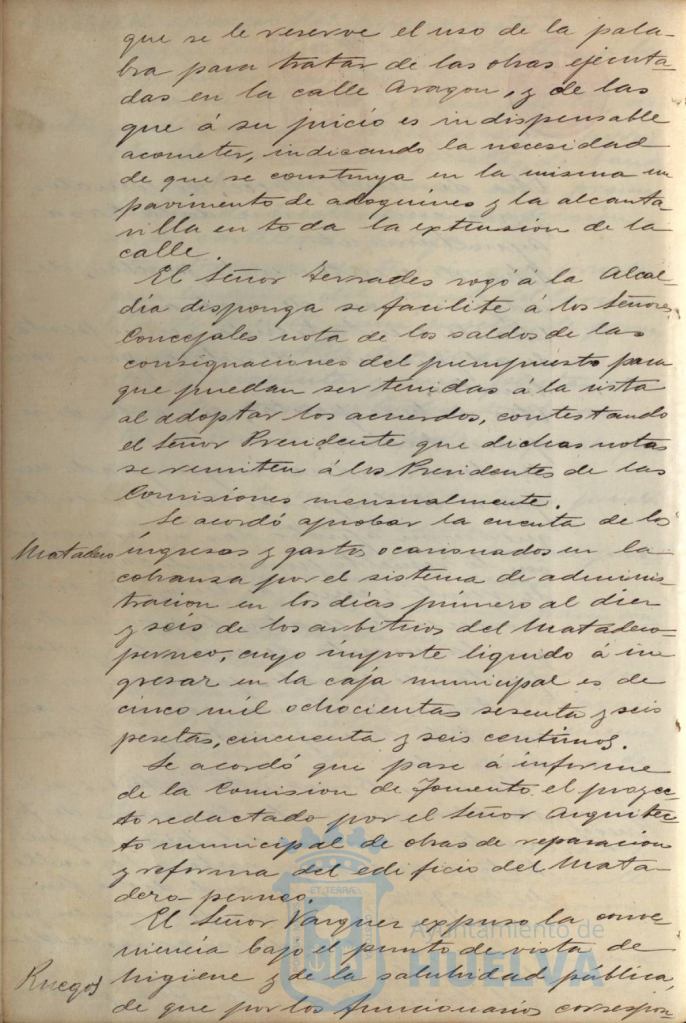 que se le reserve el uso de la pala-
bra para tratar de las obras ejecuta-
das en la calle Aragon, y de las
que á su juicio es indispensable
acometer, indicando la necesidad
de que se construya en la misma un
pavimento de adoquines y la alcanta-
rilla en toda la extension de la
calle.
El Señor Terrades rogó á la Alcal-
día disponga se facilite á los Señores
Concejales nota de los saldos de las
consignaciones del presupuesto para
que puedan ser tenidas á la vista
al adoptar los acuerdos, contestando
el Señor Presidente que dichas notas
se remiten á los Presidentes de las
Comisiones mensualmente.
Se acordó aprobar la cuenta de los
Matadero ingresos y gastos ocasionados en la
cobranza por el sistema de adminis-
tracion en los dias primero al diez
y seis de los arbitrios del Matadero-
perneo, cuyo importe liquido á in-
gresar en la caja municipal es de
cinco mil ochocientas sesenta y seis
pesetas, cincuenta y seis centimos.
Se acordó que pase á informe
de la Comision de Fomento el proyec-
to redactado por el Señor Arquitec-
to municipal de obras de reparacion
y reforma del edificio del Mata-
dero-perneo.
El Señor Vazquez expuso la conve-
niencia bajo el punto de vista de
Ruegos higiene y de la salubridad pública,
de que por los funcionarios correspon-
ET TERRÆ
Ayuntamiento de
HUELVA